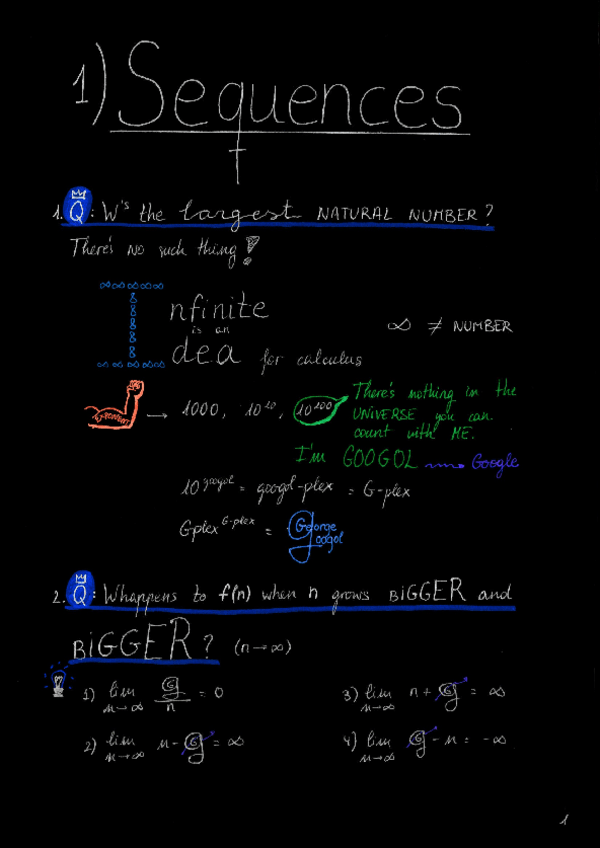 1) Sequences
1. Q: W's the largest NATURAL NUMBER?
There's NO such thing!
Infinite
is an
Idea for calculus
∞ ≠ NUMBER
→ 1000, 10¹⁰, 10¹⁰⁰
There's nothing in the
UNIVERSE you can
count with ME.
I'm GOOGOL → Google
10^googol = googol-plex = G-plex
Gplex^G-plex = George
Googol
2. Q: Whappens to f(n) when n grows BiGGER and
BiGGER? (n→∞)
1) lim n→∞ G/n = 0
2) lim n→∞ n - G = ∞
3) lim n→∞ n + G = ∞
4) lim n→∞ G - n = -∞
1